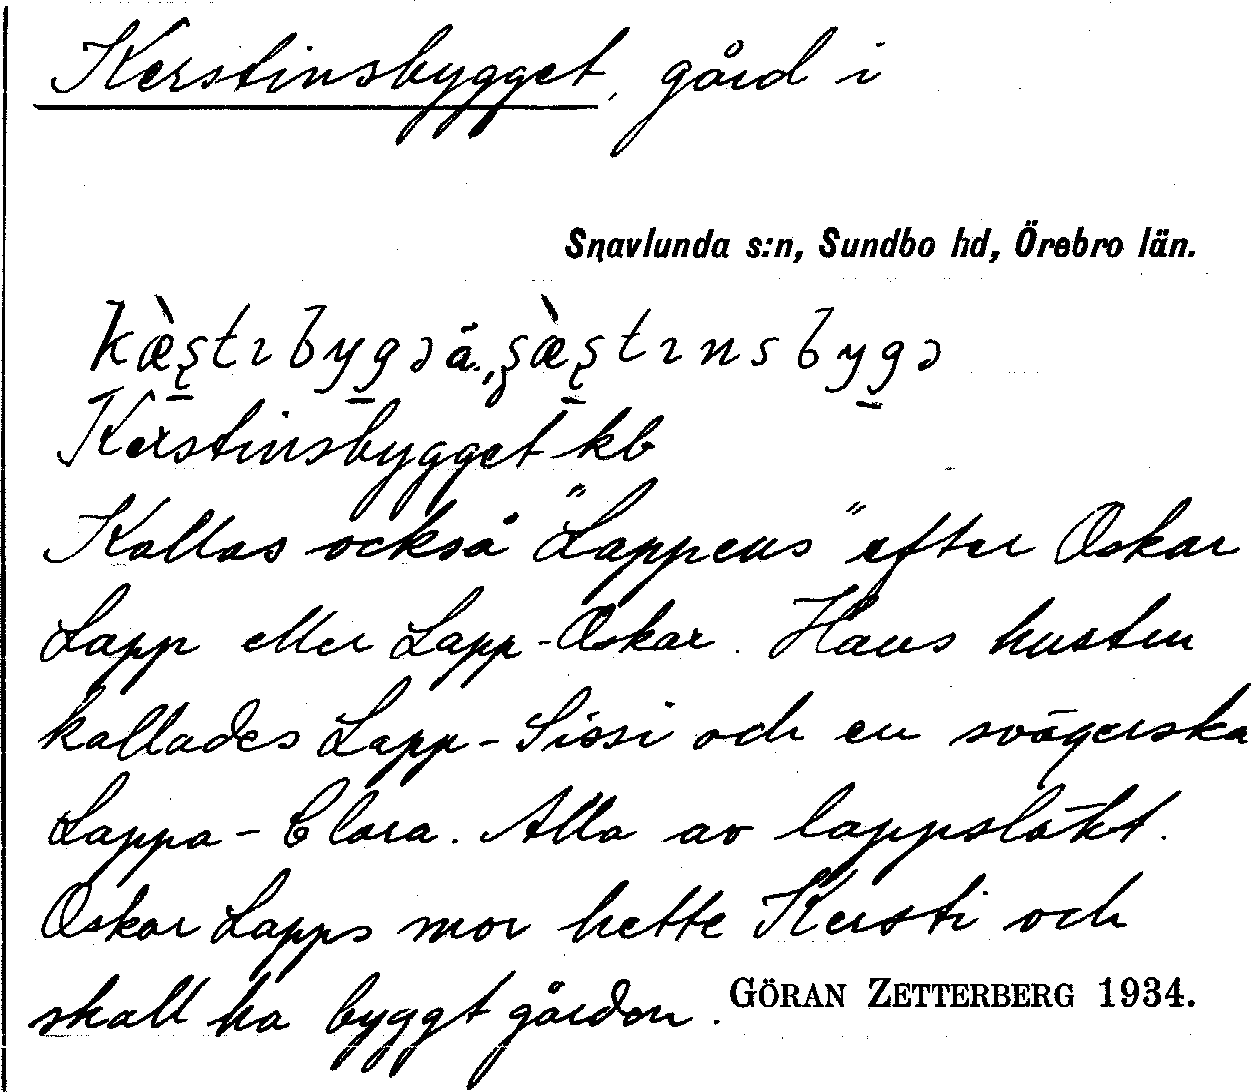 Kerstinsbygget, gård i
Snavlunda s:n, Sundbo hd, Örebro län.
kæ̀ʂtɪbygə ä., ʂæ̀ʂtɪnsbygə
Kerstinsbygget kb
Kallas också "Lappens" efter Oskar
Lapp eller Lapp-Oskar. Hans hustru
kallades Lapp-Sissi och en svägerska
Lappa-Clara. Alla av lappsläkt.
Oskar Lapps mor hette Kersti och
skall ha byggt gården.
GÖRAN ZETTERBERG 1934.